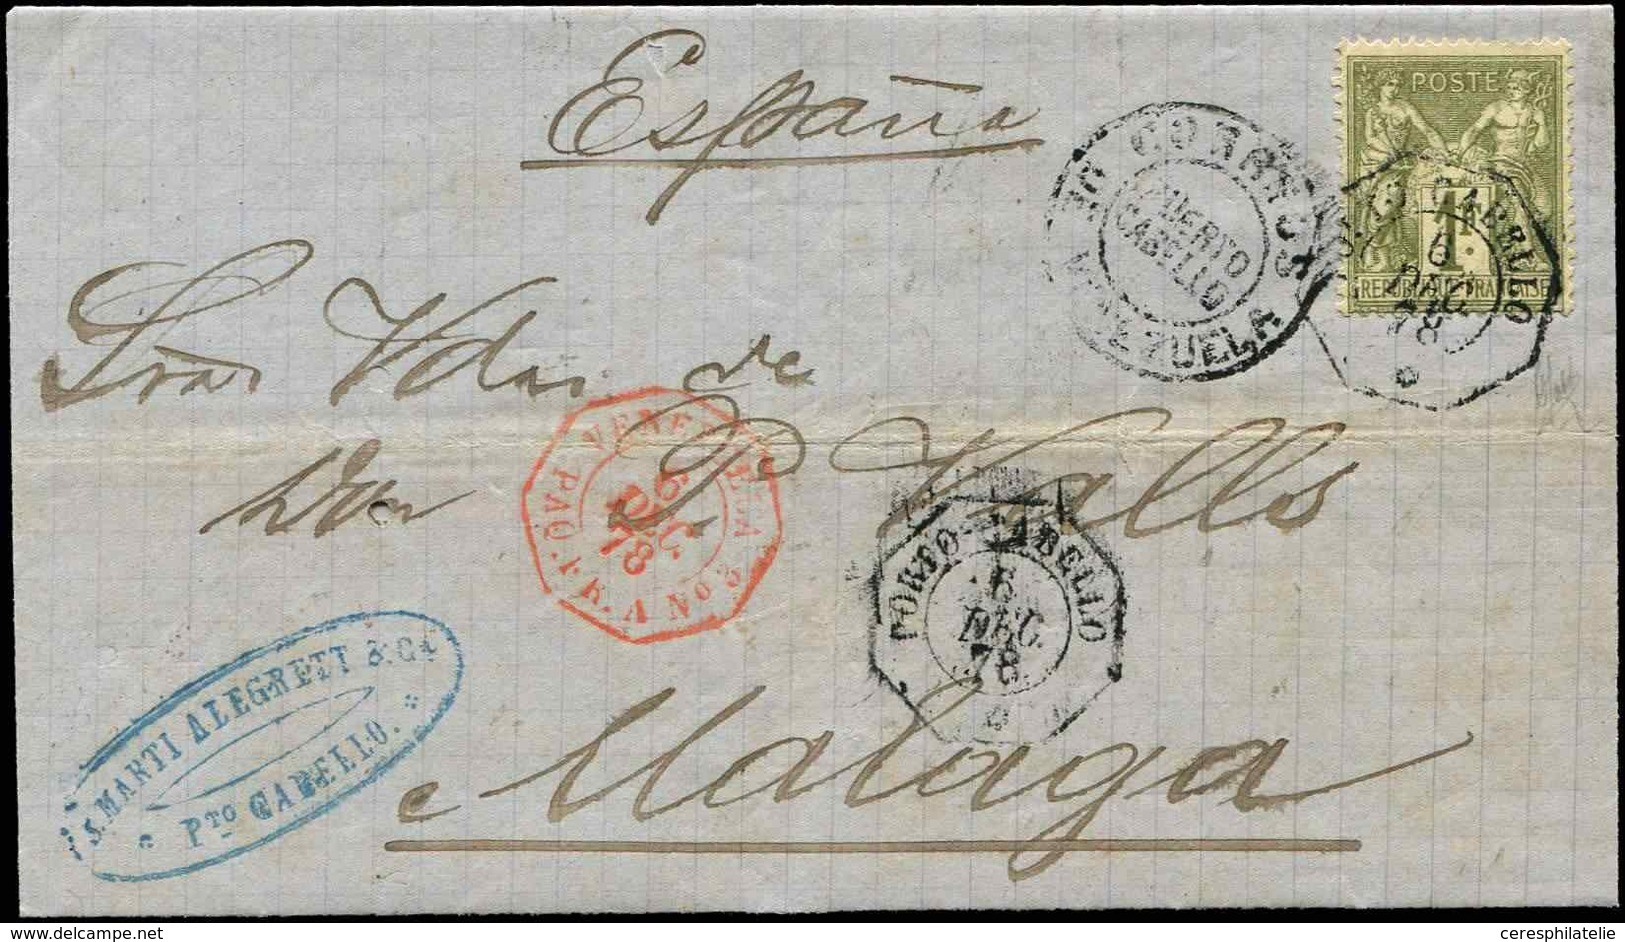 España
POSTE
1F.
REPUBLIQUE FRANÇAISE
CORREOS DE VENEZUELA
PUERTO
CABELLO
PORTO-CABELLO
6
DEC
78
Sras Vdas de
Don P. Valls
VENEZUELA
PAQ. FR. A No 2
6
DEC
78
PORTO-CABELLO
6
DEC
78
S. MARTI ALEGRETT & Ca
PTO CABELLO.
Malaga
www.delcampe.net
ceresphilatelie